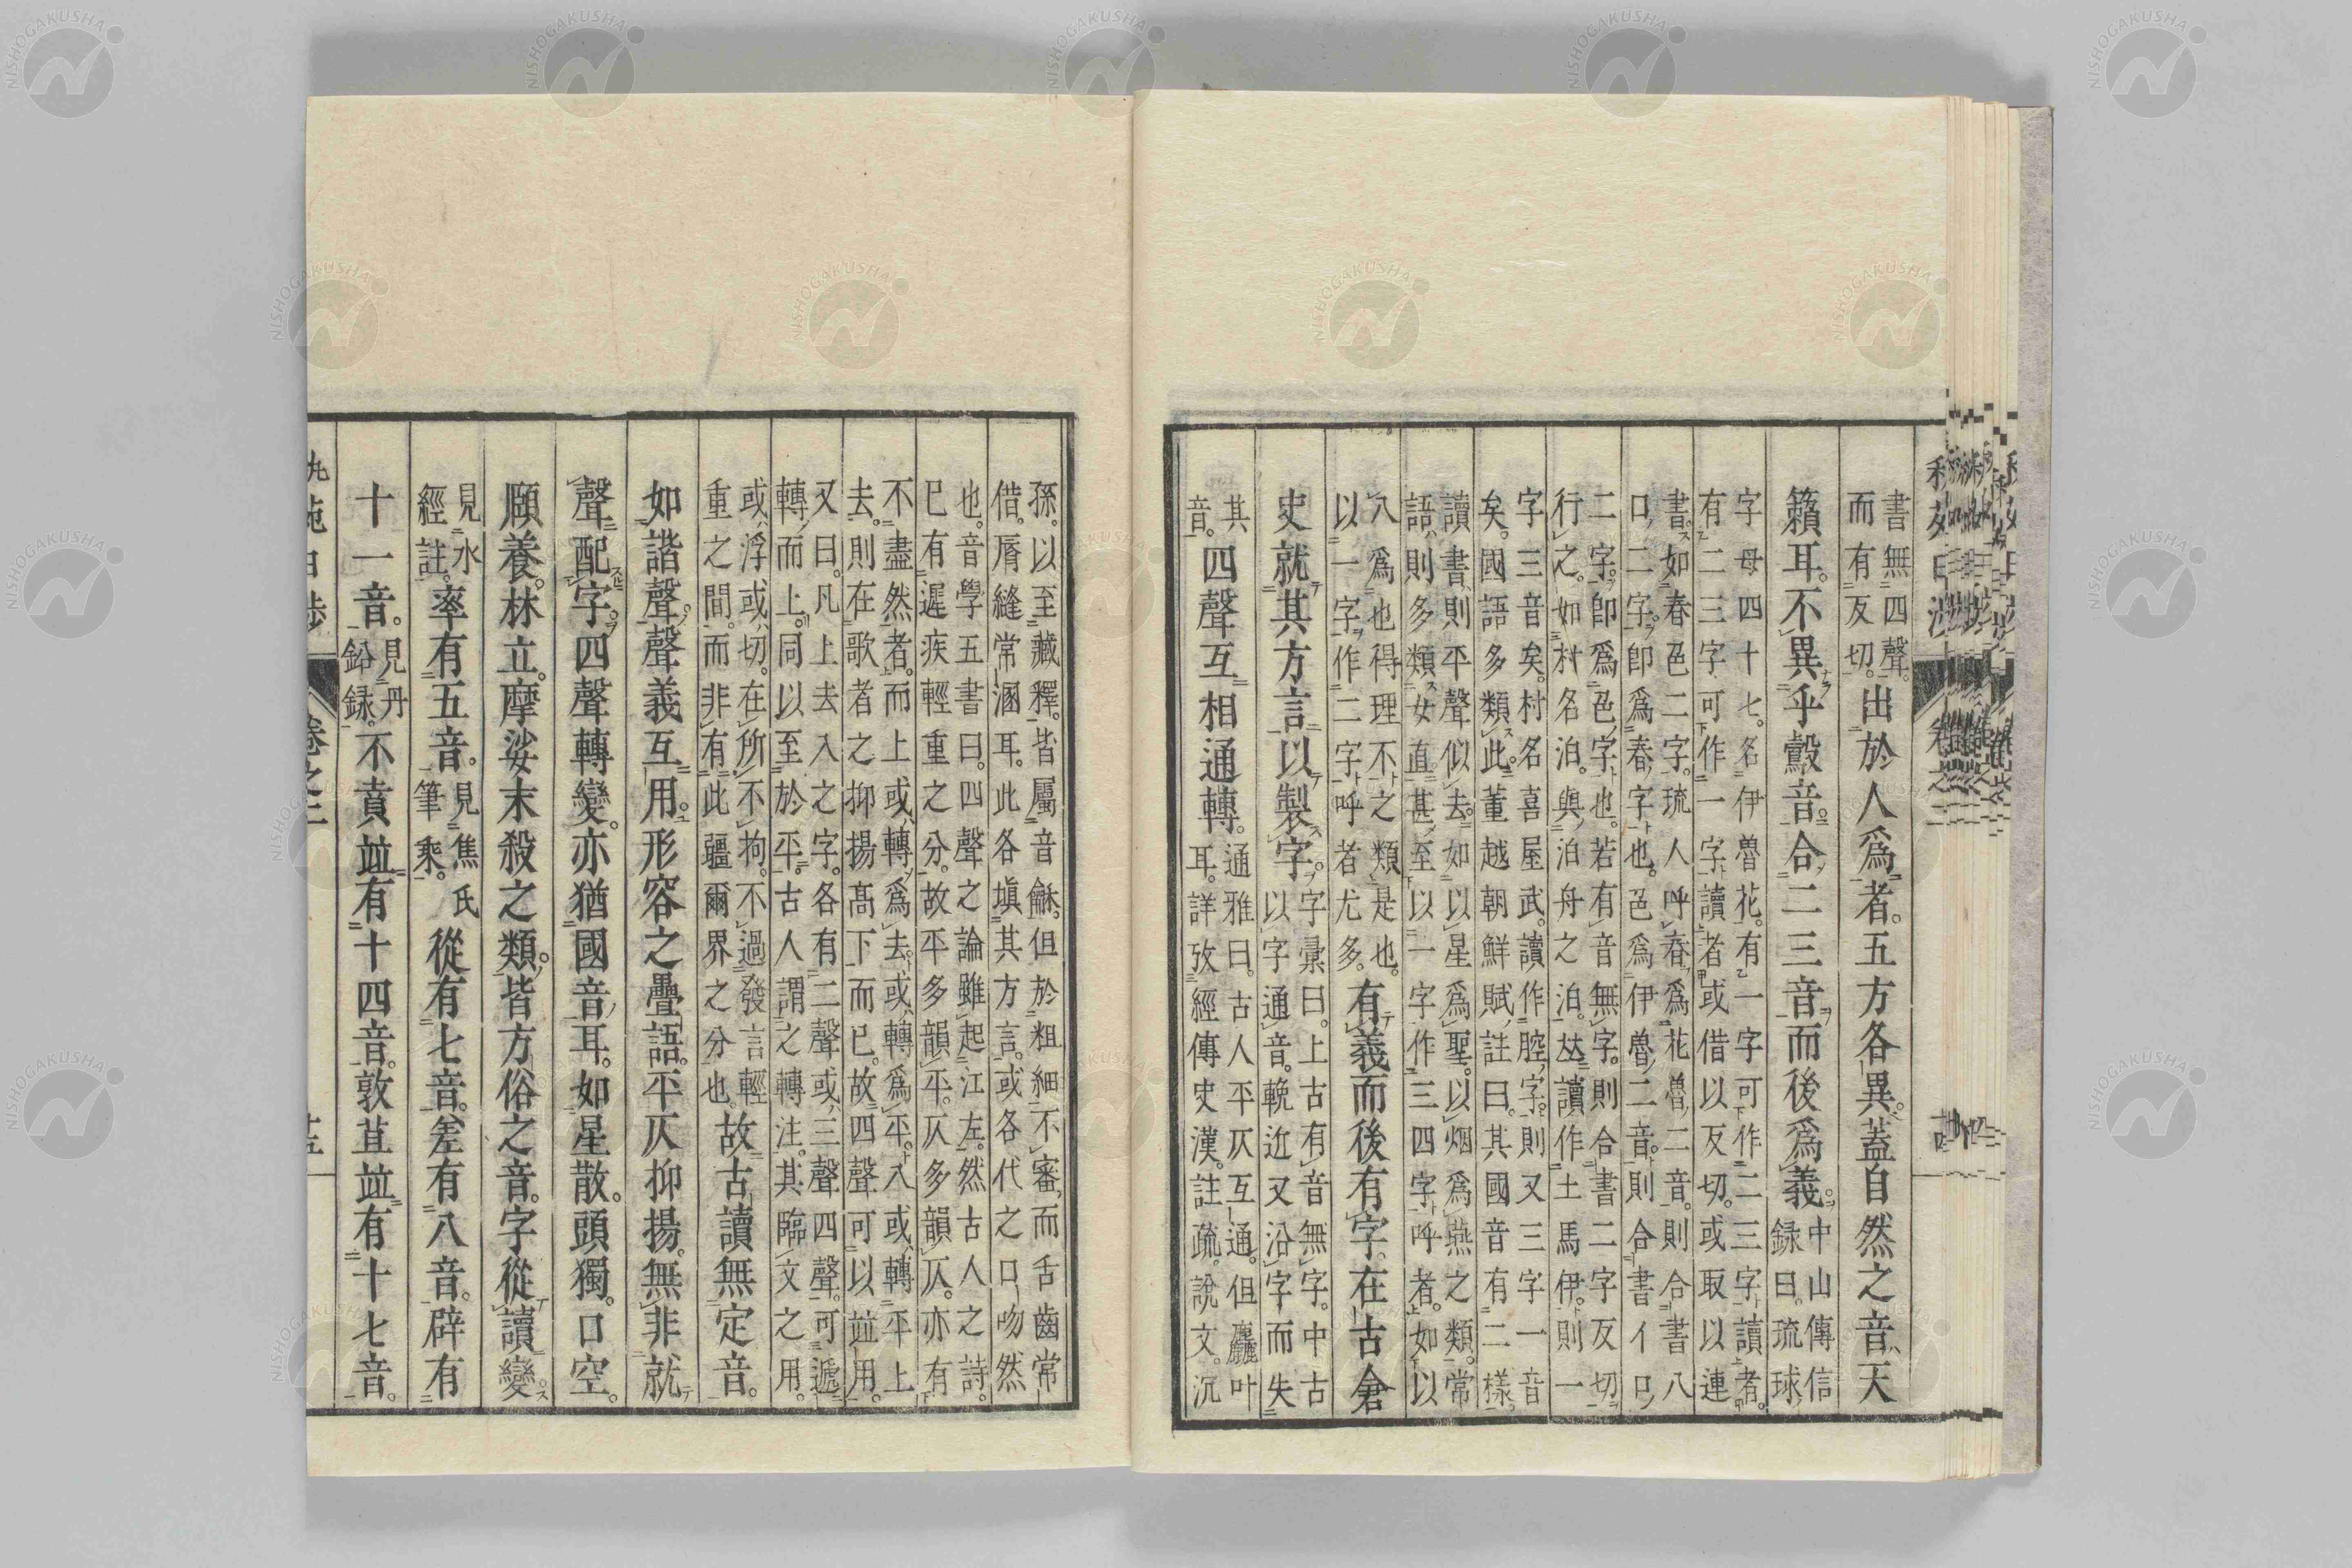 書無四聲。而有反切。出於人爲者。五方各異。蓋自然之音。天
籟耳。不異乎鷇音。合二三音而後爲義。中山傳信録曰。琉球
字母四十七。名伊魯花。有一字可作二三字讀者。
有二三字可作一字讀者。或借以反切。或取以連
書。如春色二字。琉人呼春爲花魯二音。則合書八
口二字。卽爲春字也。色爲伊魯二音。則合書イロ
二字。卽爲色字也。若有音無字。則合書二字反切
行之。如村名泊。與泊舟之泊。竝讀作土馬伊。則一
字三音矣。村名喜屋武。讀作腔字。則又三字一音
矣。國語多類此。董越朝鮮賦註曰。其國音有二樣。
讀書則平聲似去。如以星爲聖。以烟爲燕之類。常
語則多類女直。甚至以一字作三四字呼者。如以
八爲也得理不之類是也。
以一字作二字呼者尤多。有義而後有字。在古倉
史就其方言以製字。字彙曰。上古有音無字。中古
以字通音。輓近又沿字而失
其音。四聲互相通轉。通雅曰。古人平仄互通。但麤叶
耳。詳攷經傳史漢。註疏。說文。沉
孫。以至藏釋。皆屬音龢。但於粗細不審。而舌齒常
借。脣縫常溷耳。此各塡其方言。或各代之口吻然
也。音學五書曰。四聲之論雖起江左。然古人之詩。
已有遲疾輕重之分。故平多韻平。仄多韻仄。亦有
不盡然者。而上或轉爲去。去或轉爲平。入或轉平上
去。則在歌者之抑揚高下而已。故四聲可以竝用。
又曰。凡上去入之字。各有二聲或三聲四聲。可遞
轉而上。同以至於平。古人謂之轉注。其臨文之用。
或浮或切。在所不拘。不過發言輕
重之間。而非有此疆爾界之分也。故古讀無定音。
如諧聲。聲義互用。形容之疊語。平仄抑揚。無非就
聲配字。四聲轉變。亦猶國音耳。如星散。頭獨。口空。
願養。林立。摩娑末殺之類。皆方俗之音。字從讀變。
見水經註。率有五音。見焦氏筆乘。從有七音。差有八音。辟有
十一音。見丹鉛録。不賁竝有十四音。敦苴竝有十七音。
卷之二